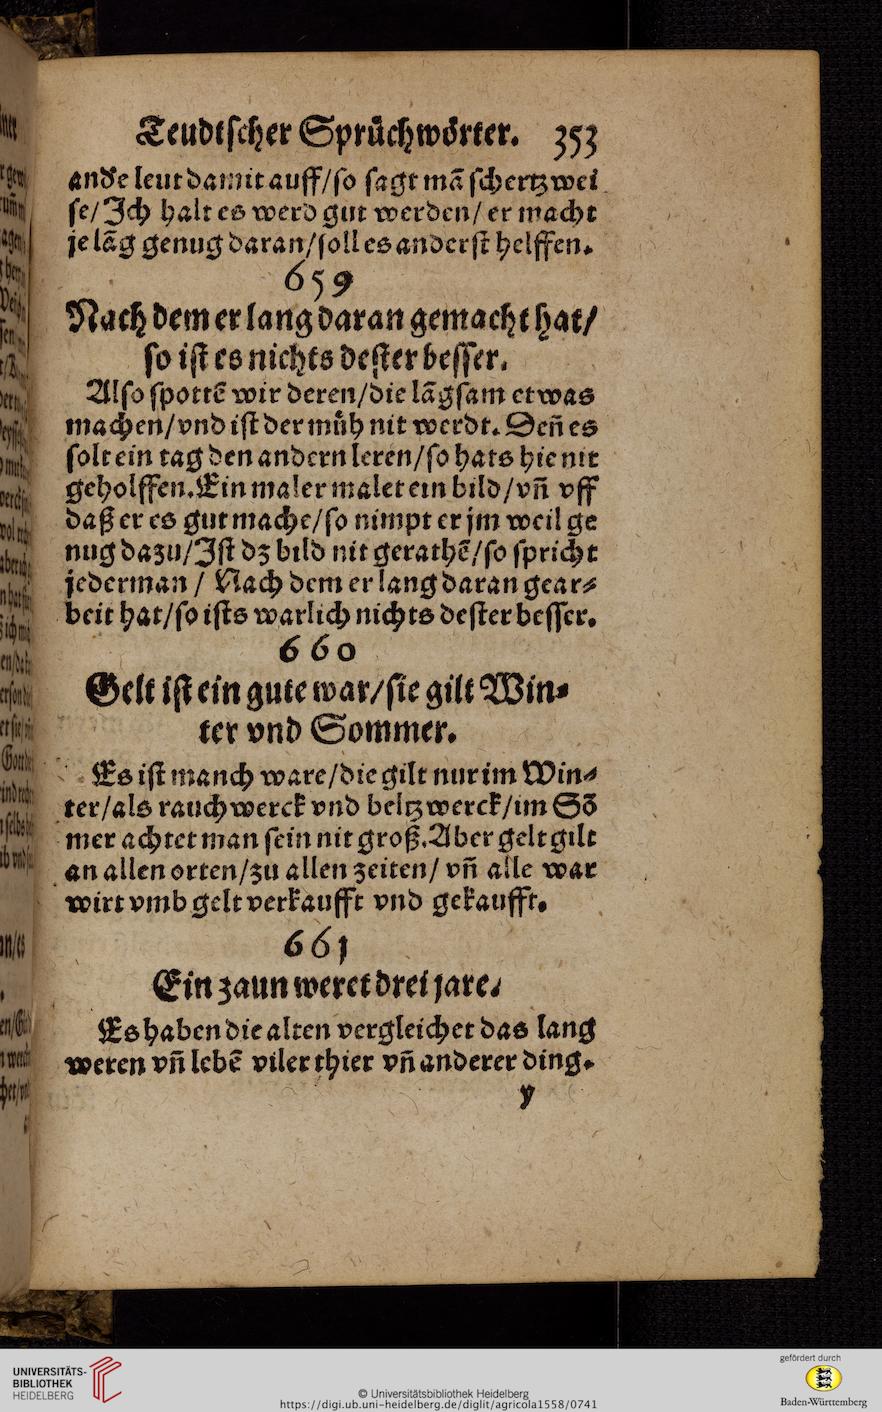 Teudtſcher Spruͤchwoͤrter. 353
andꝰe leut damit auff/ſo ſagt mã ſchertzwei
ſe/Ich halt es werd gut werden/er macht
je lãg genug daran/ſoll es anderſt helffen.
659
Nach dem er lang daran gemacht hat/
ſo iſt es nichts deſter beſſer.
Alſo ſpottẽ wir deren/die lãgſam etwas
machen/vnd iſt der muͤh nit werdt. Deñ es
ſolt ein tag den andern leren/ſo hats hie nit
geholffen. Ein maler malet ein bild/vñ vff
daß er es gut mache/ſo nimpt er jm weil ge
nug dazu/Iſt dz bild nit gerathẽ/ſo ſpricht
jederman / Nach dem er lang daran gear⸗
beit hat/ſo iſts warlich nichts deſter beſſer.
660
Gelt iſt ein gute war/ſie gilt Win⸗
ter vnd Sommer.
Es iſt manch ware/die gilt nur im Win⸗
ter/als rauchwerck vnd beltzwerck/im Sõ
mer achtet man ſein nit groß. Aber gelt gilt
an allen orten/zu allen zeiten/ vñ alle war
wirt vmb gelt verkaufft vnd gekaufft.
661
Ein zaun weret drei jare.
Es haben die alten vergleichet das lang
weren vñ lebẽ viler thier vñ anderer ding.
y
UNIVERSITÄTS-
BIBLIOTHEK
HEIDELBERG
© Universitätsbibliothek Heidelberg
https://digi.ub.uni-heidelberg.de/diglit/agricola1558/0741
gefördert durch
Baden-Württemberg